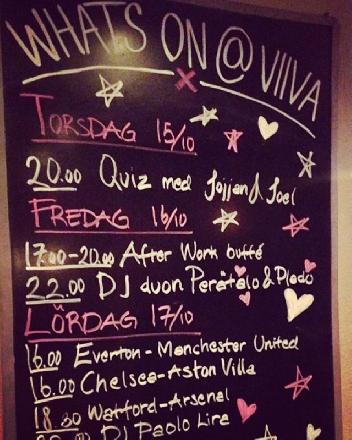 WHATS ON @ VIIVA
TORSDAG 15/10
20.00 Quiz med Jojjan & Joel
FREDAG 16/10
17.00-20.00 After Work buffé
22.00 DJ duon Perátalo & Dledo
LÖRDAG 17/10
16.00 Everton - Manchester United
16.00 Chelsea - Aston Villa
18.30 Watford - Arsenal
DJ Paolo Lira